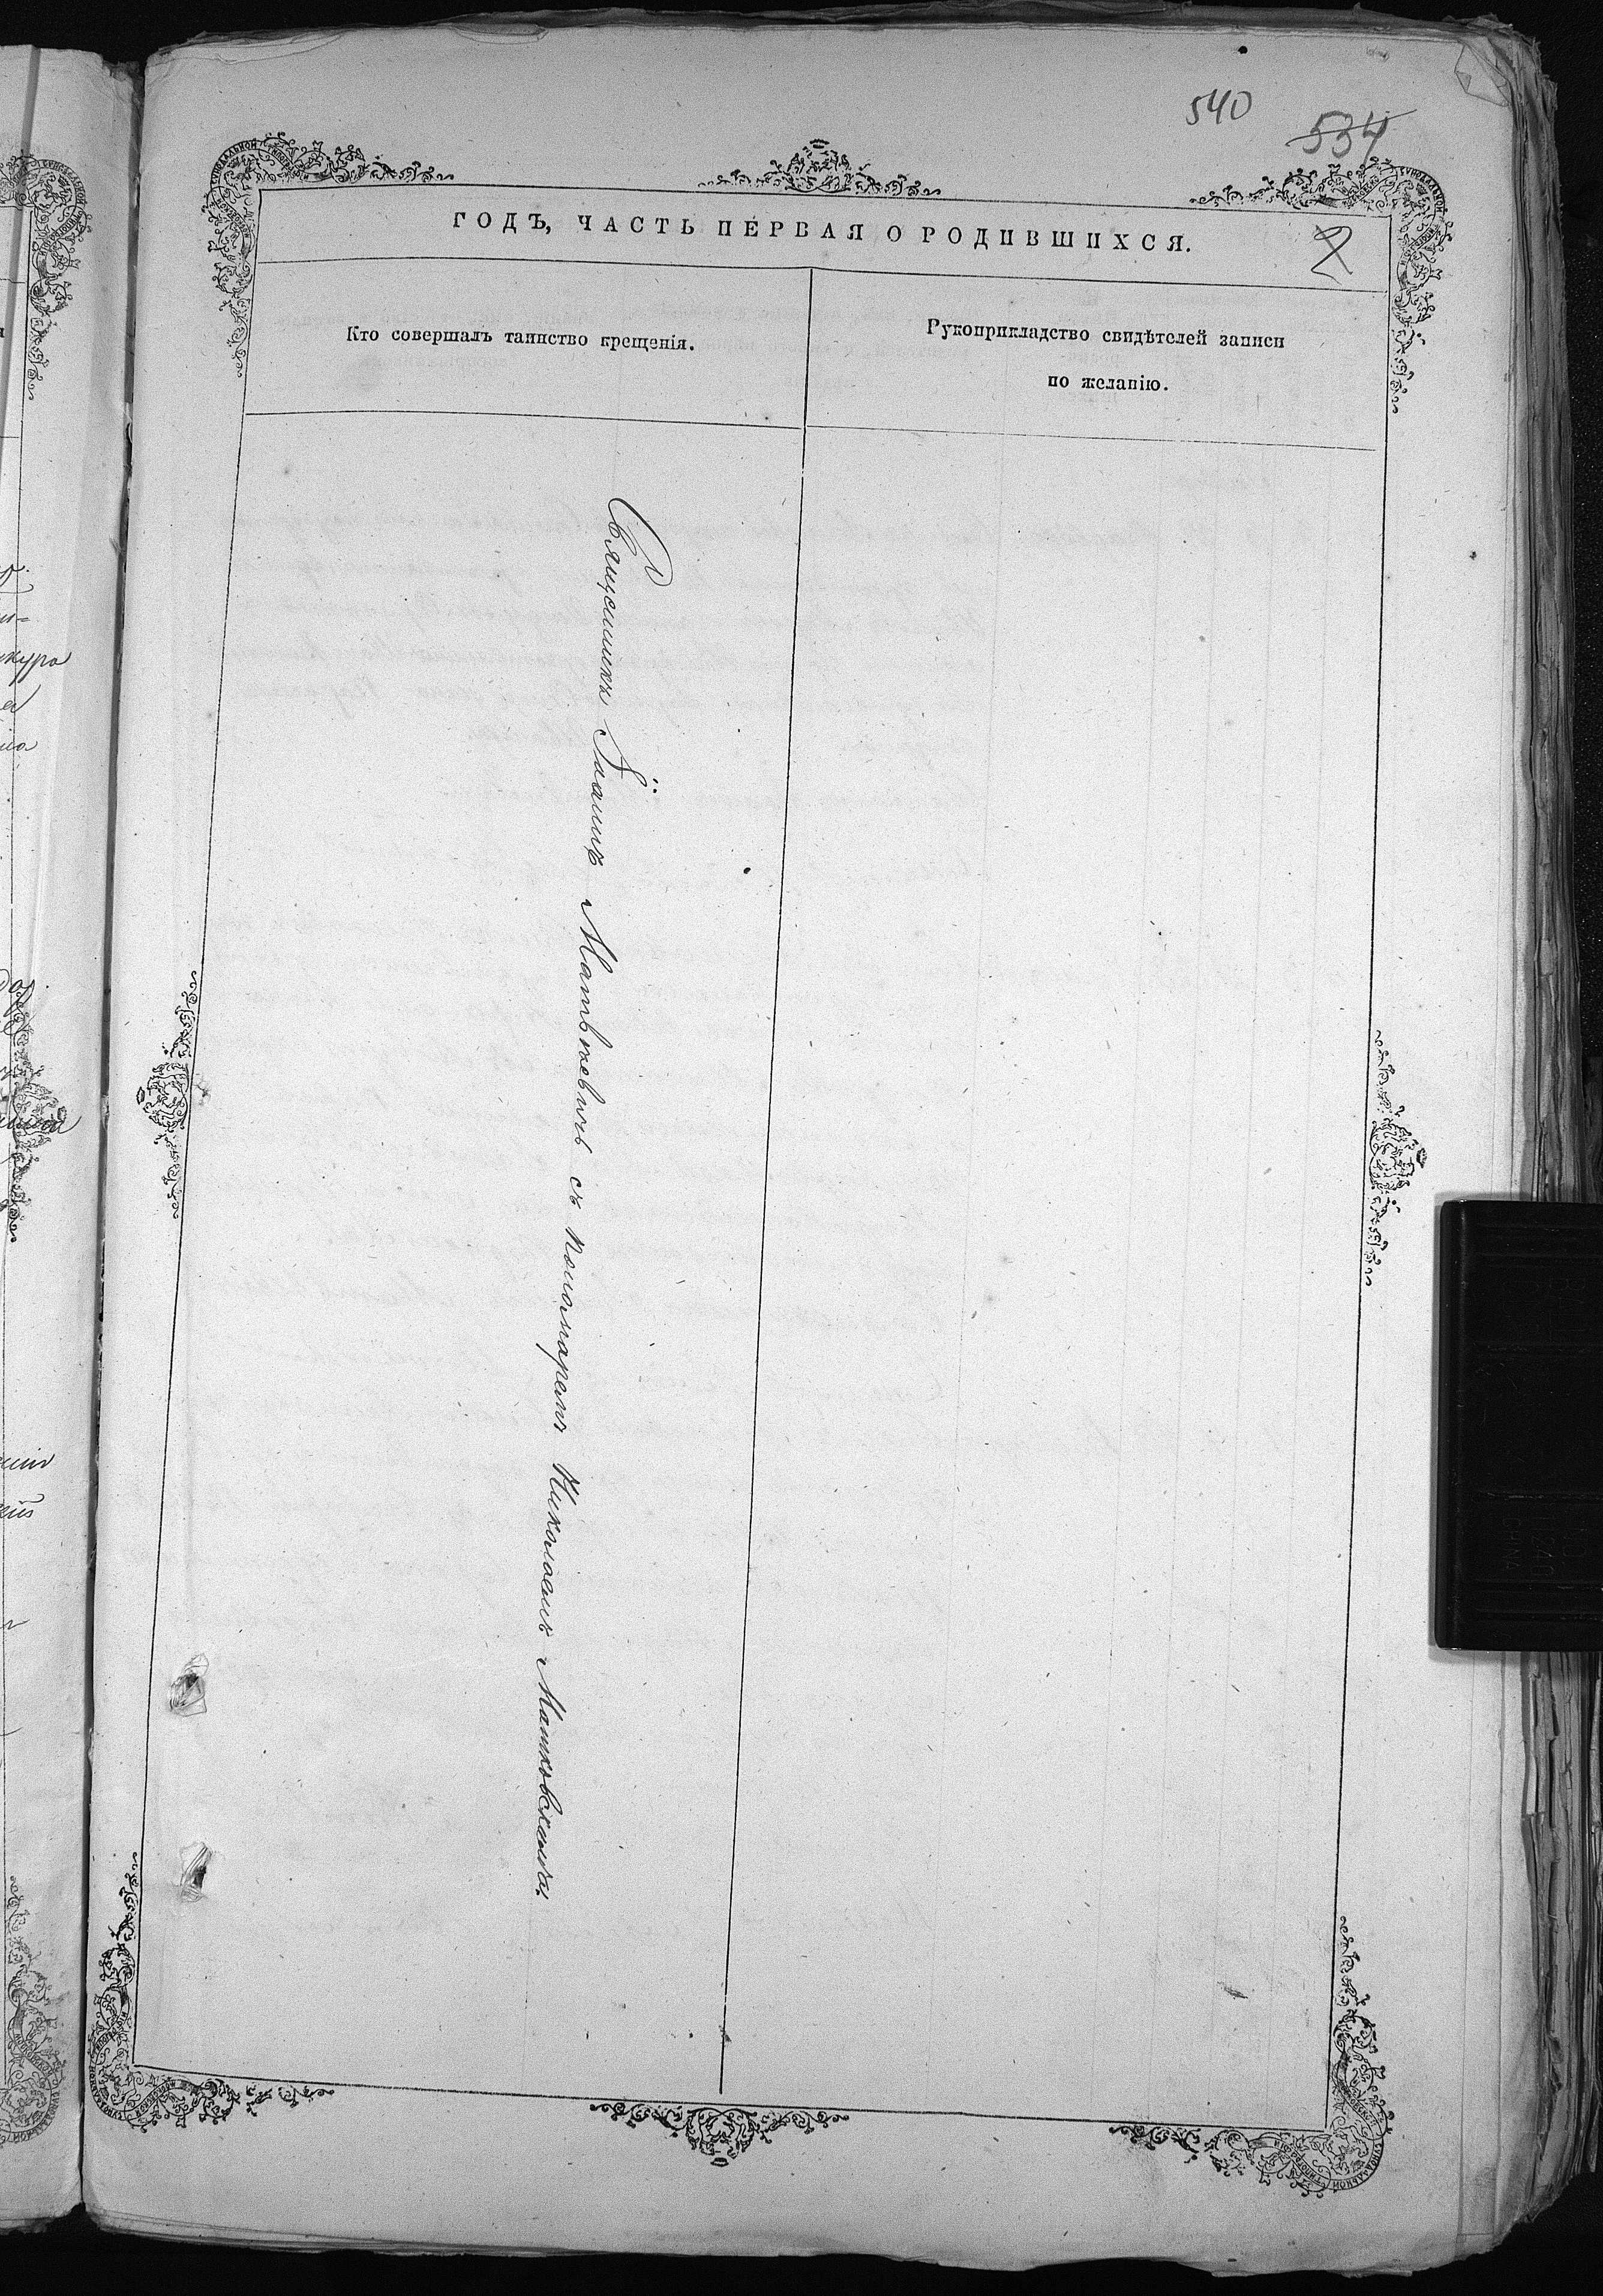 540
534
ГОДЪ, ЧАСТЬ ПЕРВАЯ О РОДИВШИХСЯ.
2
Кто совершалъ таинство крещенія.
Рукоприкладство свидѣтелей записи
по желанію.
Священникъ Іоаннъ Матвѣевичъ съ пономаремъ Николаемъ Машковскимъ.